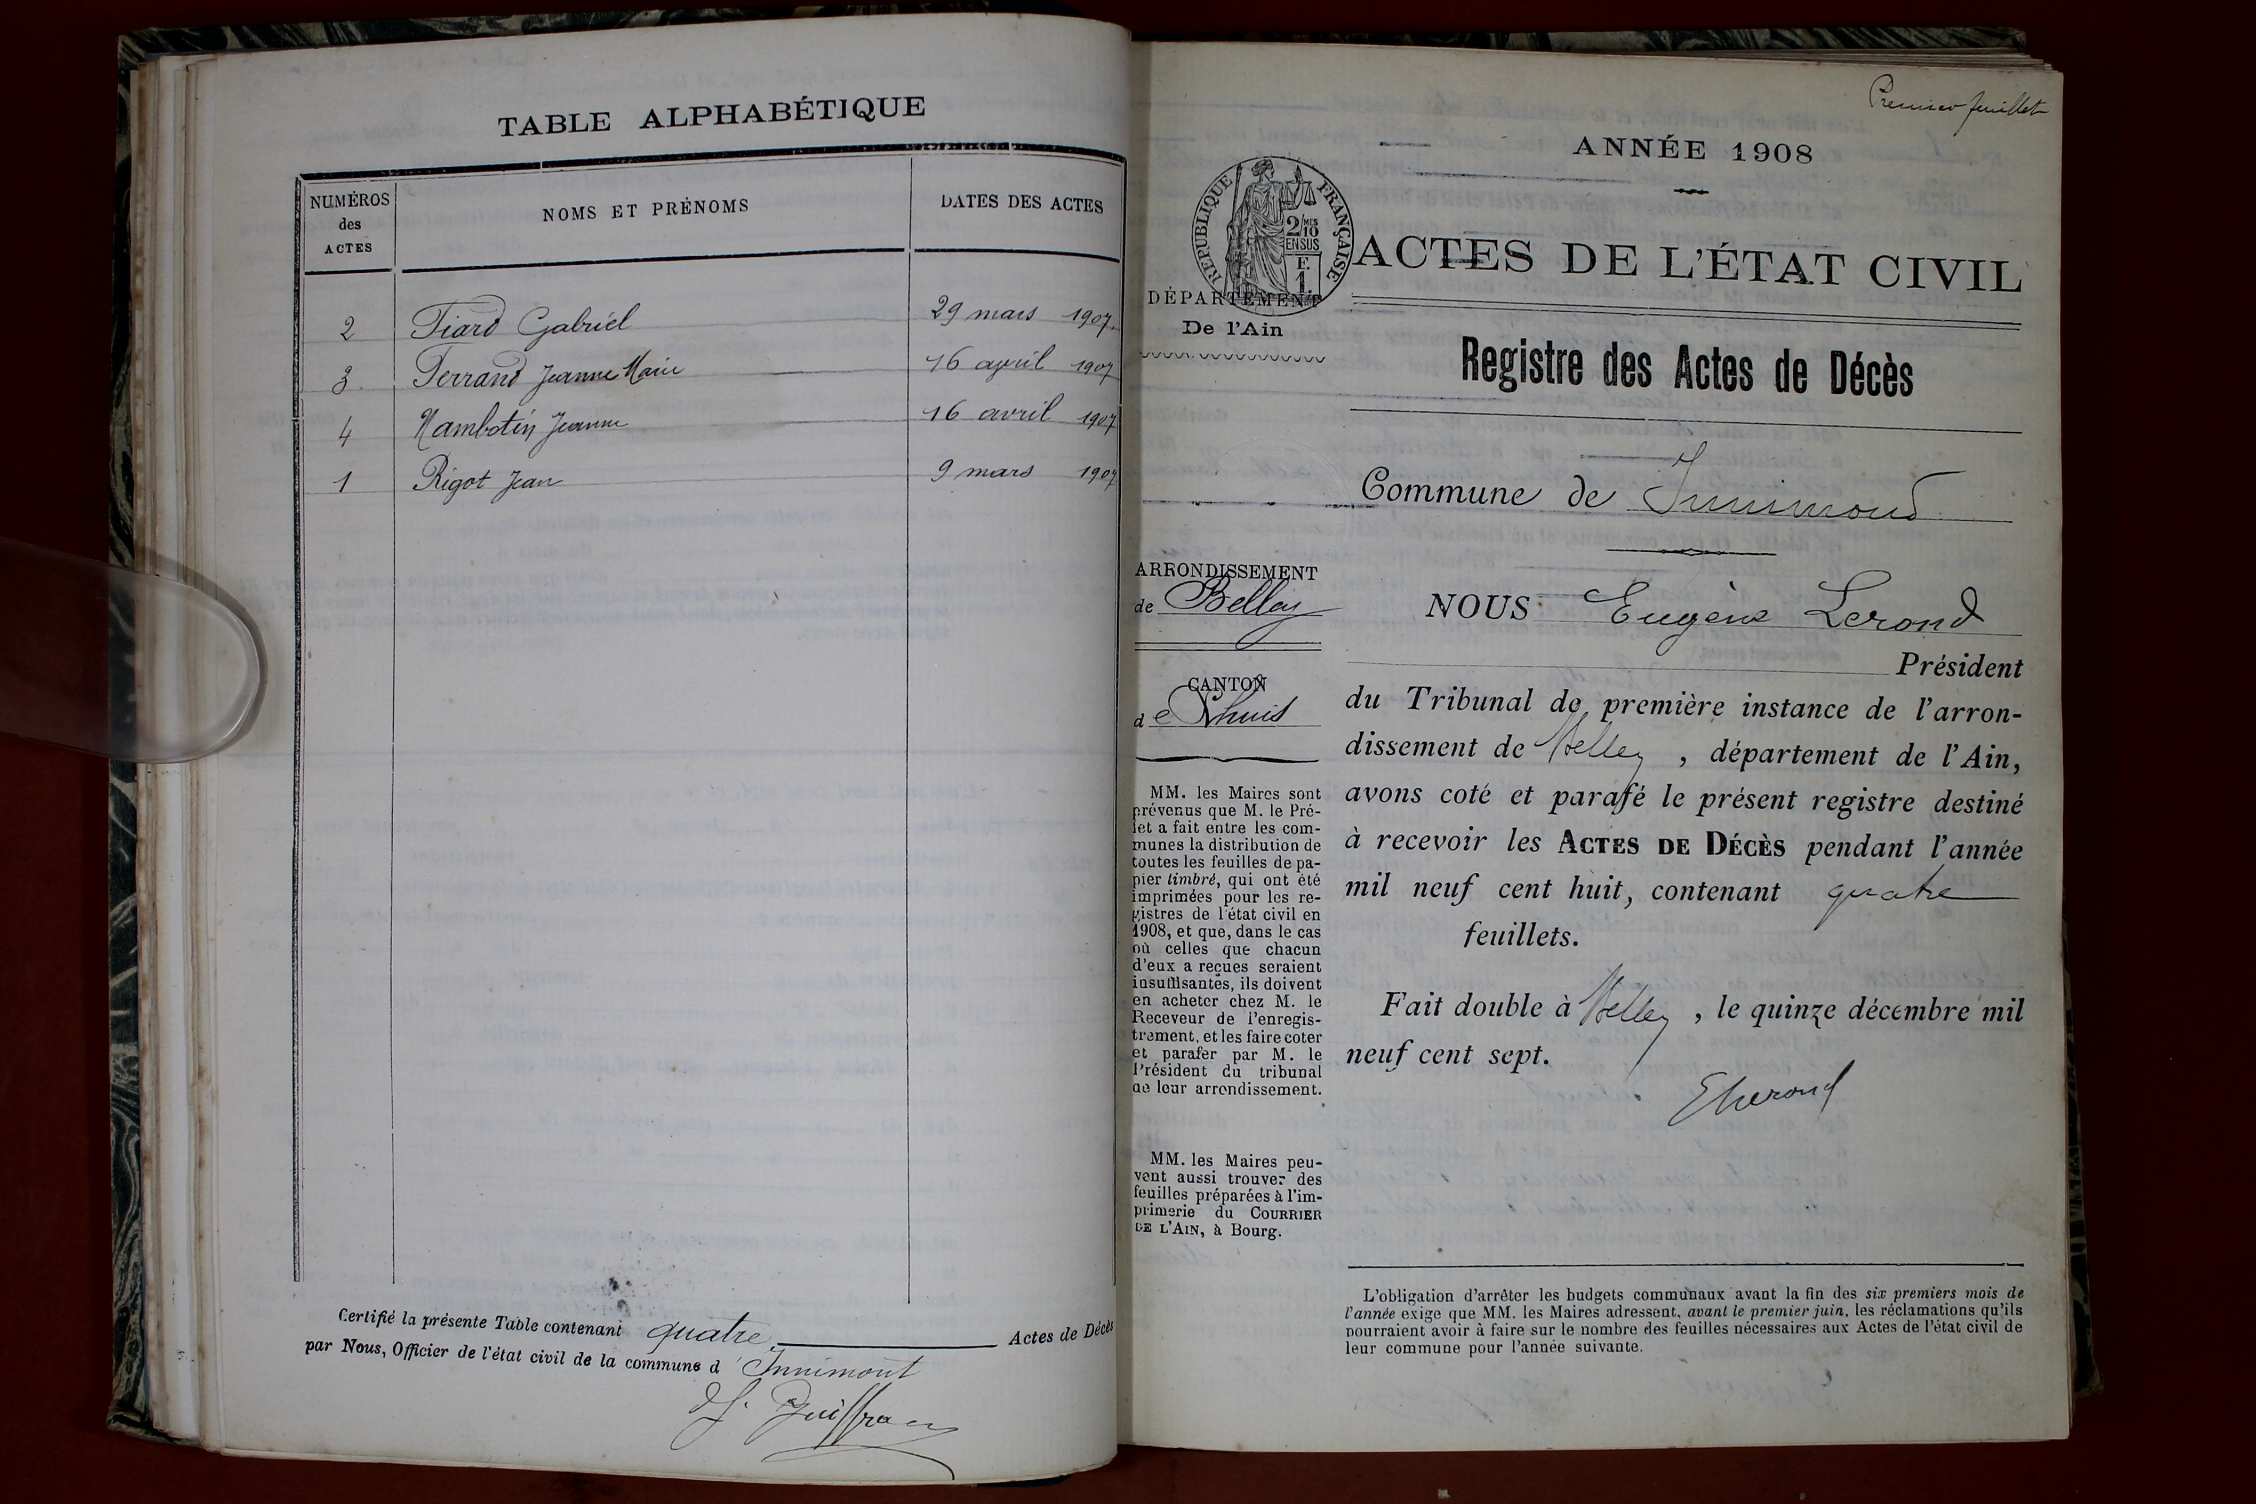 TABLE ALPHABÉTIQUE
NUMÉROS des ACTES
NOMS ET PRÉNOMS
DATES DES ACTES
2 Fiard Gabriel 29 mars 1907
3 Ferrand Jeanne Marie 16 april 1907
4 Nambotin Jeanne 16 avril 1907
1 Rigot Jean 9 mars 1907
Certifié la présente Table contenant quatre Actes de Décès
par Nous, Officier de l'état civil de la commune d'Innimont
Premier feuillet
ANNÉE 1908
RÉPUBLIQUE FRANÇAISE
2/10 MES
EN SUS
F.
1.
ACTES DE L'ÉTAT CIVIL
DÉPARTEMENT
De l'Ain
Registre des Actes de Décès
Commune de Innimond
ARRONDISSEMENT
de Belley
CANTON
de Lhuis
MM. les Maires sont
prévenus que M. le Pré-
fet a fait entre les com-
munes la distribution de
toutes les feuilles de pa-
pier timbré, qui ont été
imprimées pour les re-
gistres de l'état civil en
1908, et que, dans le cas
où celles que chacun
d'eux a reçues seraient
insuffisantes, ils doivent
en acheter chez M. le
Receveur de l'enregis-
trement, et les faire coter
et parafer par M. le
Président du tribunal
de leur arrondissement.
MM. les Maires peu-
vent aussi trouver des
feuilles préparées à l'im-
primerie du COURRIER
DE L'AIN, à Bourg.
NOUS Eugène Lerond
Président
du Tribunal de première instance de l'arron-
dissement de Belley, département de l'Ain,
avons coté et parafé le présent registre destiné
à recevoir les ACTES DE DÉCÈS pendant l'année
mil neuf cent huit, contenant quatre
feuillets.
Fait double à Belley, le quinze décembre mil
neuf cent sept.
ELerond
L'obligation d'arrêter les budgets communaux avant la fin des six premiers mois de
l'année exige que MM. les Maires adressent, avant le premier juin, les réclamations qu'ils
pourraient avoir à faire sur le nombre des feuilles nécessaires aux Actes de l'état civil de
leur commune pour l'année suivante.